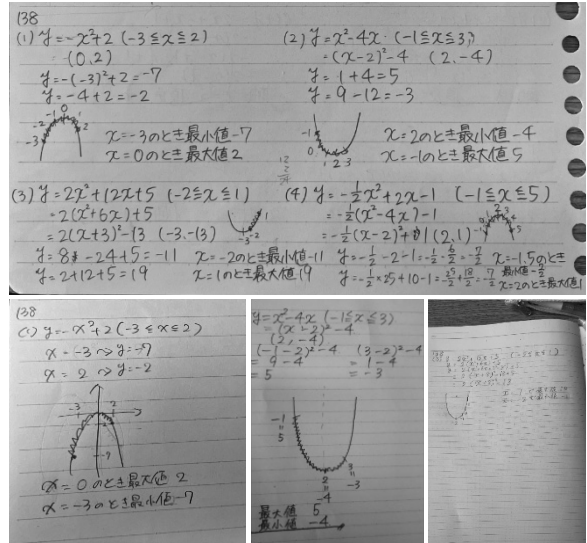 138
(1) y=-x²+2 (-3≦x≦2)
(0,2)
y=-(-3)²+2=-7
y=-4+2=-2
-3 -2 -1 0 1 2
x=-3のとき最小値-7
x=0のとき最大値2
(2) y=x²-4x (-1≦x≦3)
=(x-2)²-4 (2,-4)
y=1+4=5
y=9-12=-3
-1 0 1 2 3
x=2のとき最小値-4
x=-1のとき最大値5
(3) y=2x²+12x+5 (-2≦x≦1)
=2(x²+6x)+5
=2(x+3)²-13 (-3,-13)
y=8-24+5=-11
y=2+12+5=19
-3 -2
x=-2のとき最小値-11
x=1のとき最大値19
(4) y=-1/2x²+2x-1 (-1≦x≦5)
=-1/2(x²-4x)-1
=-1/2(x-2)²+1 (2,1)
y=-1/2-2-1=-1/2-6/2=-7/2
y=-1/2×25+10-1=-25/2+18/2=-7/2
x=-1,5のとき
最小値-7/2
x=2のとき最大値1
138
(1) y=-x²+2 (-3≦x≦2)
x=-3→y=-7
x=2→y=-2
-3 2
-7
x=0のとき最大値 2
x=-3のとき最小値-7
y=x²-4x (-1≦x≦3)
=(x-2)²-4
(2,-4)
(-1-2)²-4 (3-2)²-4
=9-4 =1-4
=5 =-3
-1 = 5
2 = -4
3 = -3
最大値 5
最小値 -4